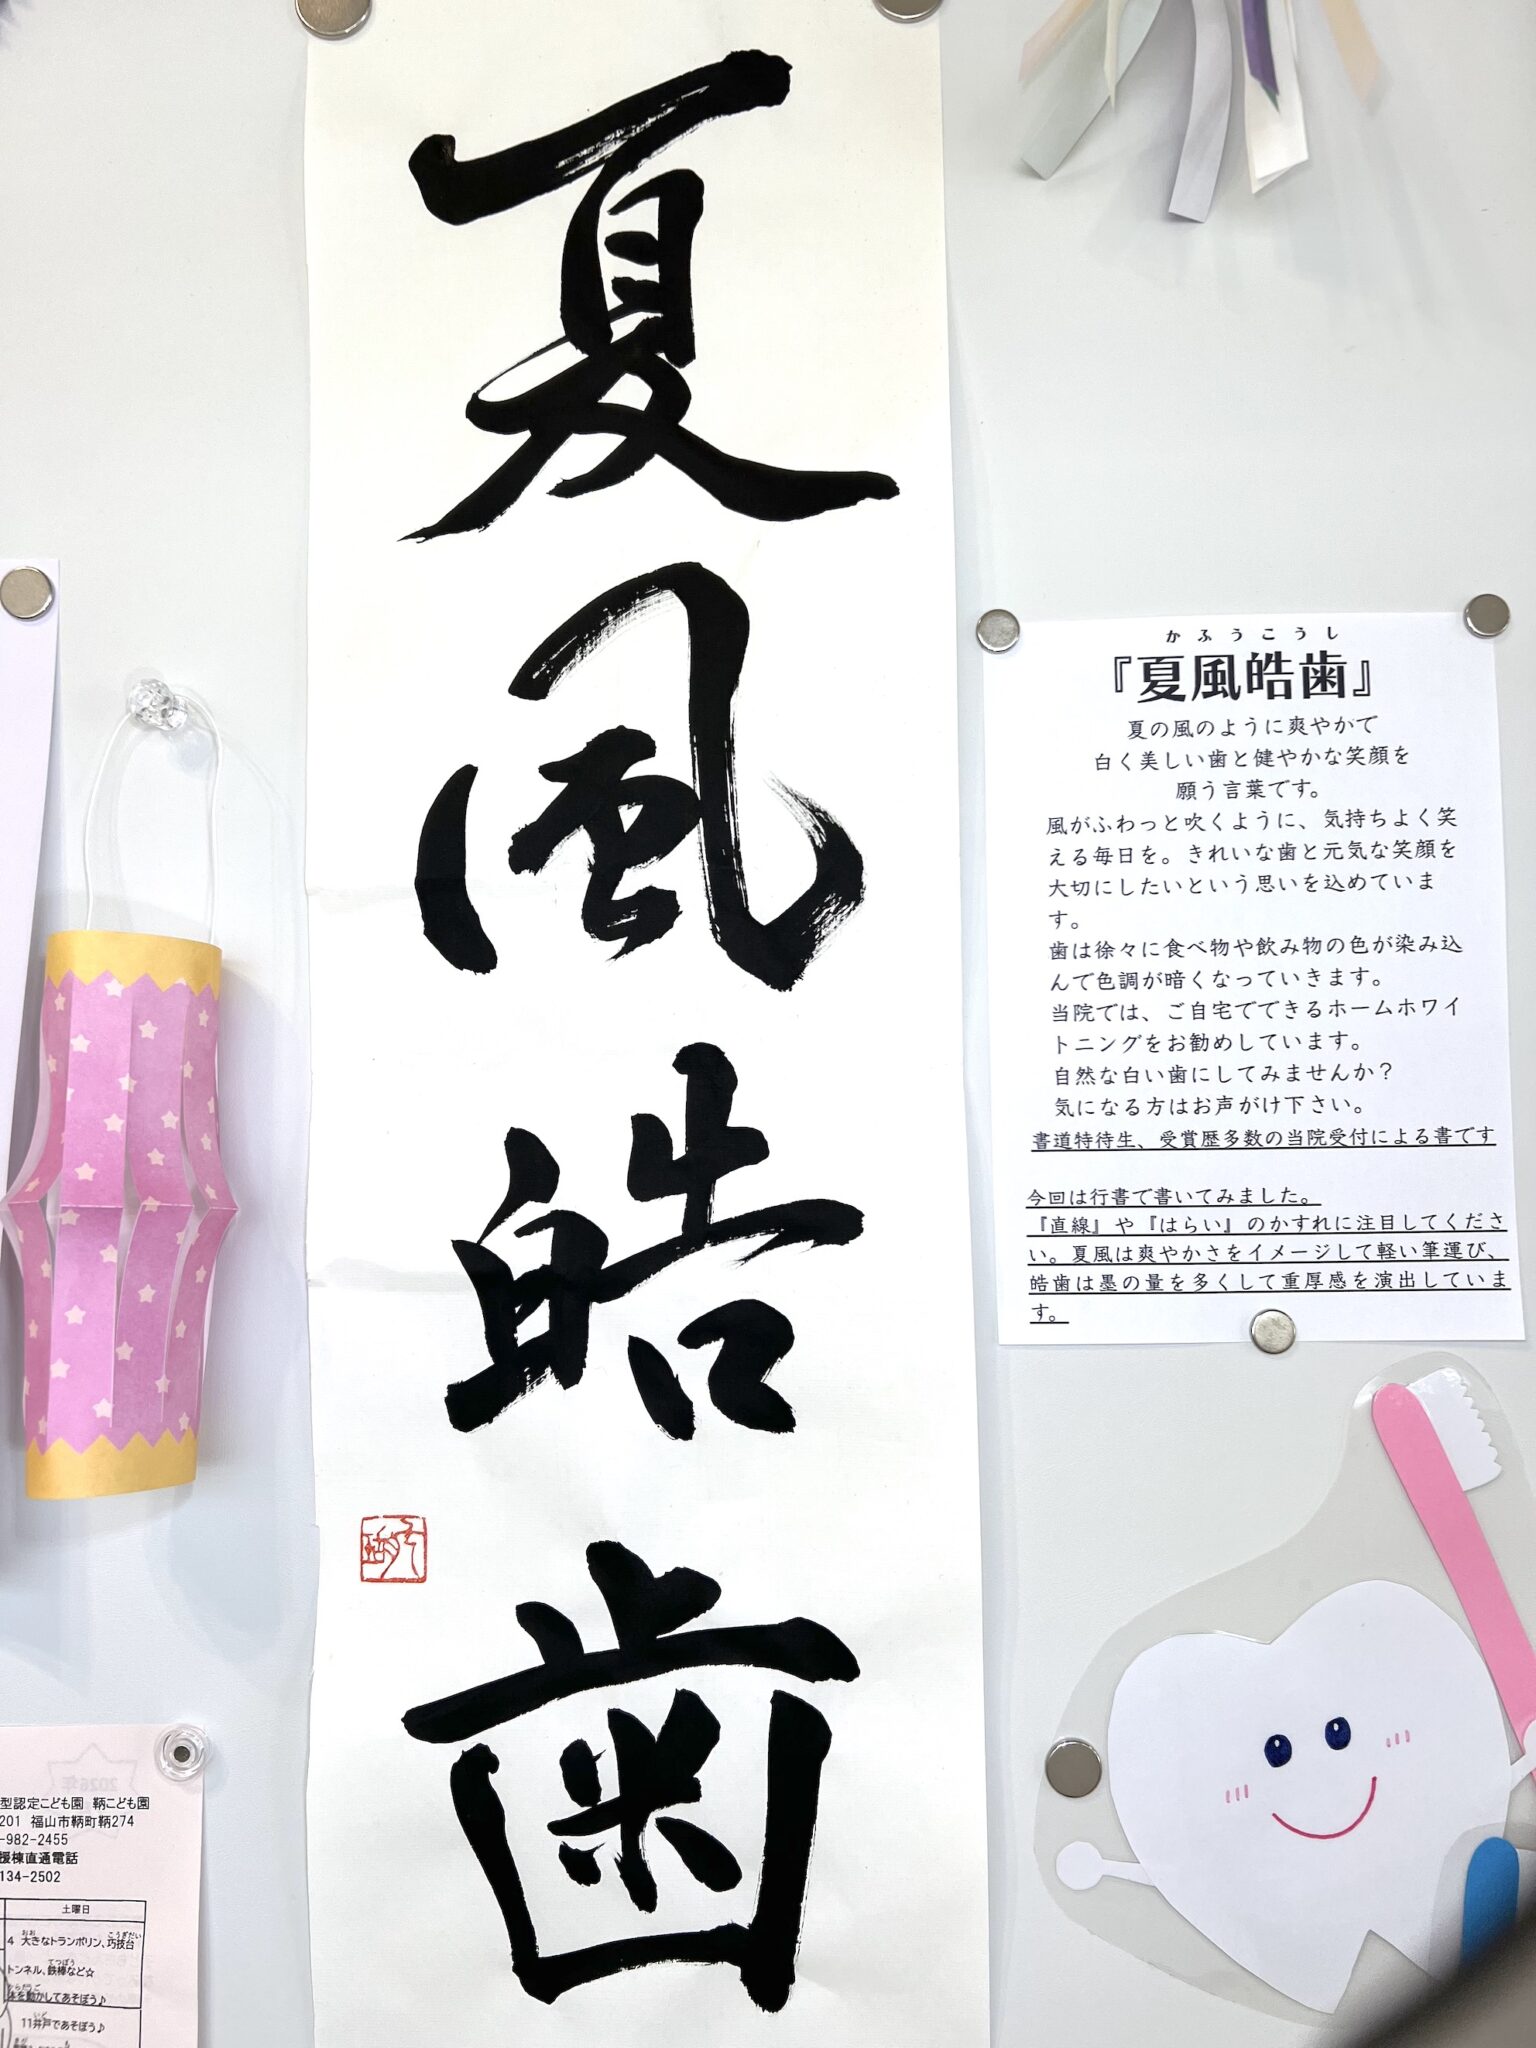 夏風皓歯
かふうこうし
『夏風皓歯』
夏の風のように爽やかで
白く美しい歯と健やかな笑顔を
願う言葉です。
風がふわっと吹くように、気持ちよく笑
える毎日を。きれいな歯と元気な笑顔を
大切にしたいという思いを込めていま
す。
歯は徐々に食べ物や飲み物の色が染み込
んで色調が暗くなっていきます。
当院では、ご自宅でできるホームホワイ
トニングをお勧めしています。
自然な白い歯にしてみませんか？
気になる方はお声がけ下さい。
書道特待生、受賞歴多数の当院受付による書です
今回は行書で書いてみました。
『直線』や『はらい』のかすれに注目してくださ
い。夏風は爽やかさをイメージして軽い筆運び、
皓歯は墨の量を多くして重厚感を演出していま
す。
型認定こども園 鞆こども園
201 福山市鞆町鞆274
-982-2455
援棟直通電話
134-2502
土曜日
4 大きなトランポリン、巧技台
トンネル、鉄棒など☆
体を動かしてあそぼう♪
11井戸であそぼう♪